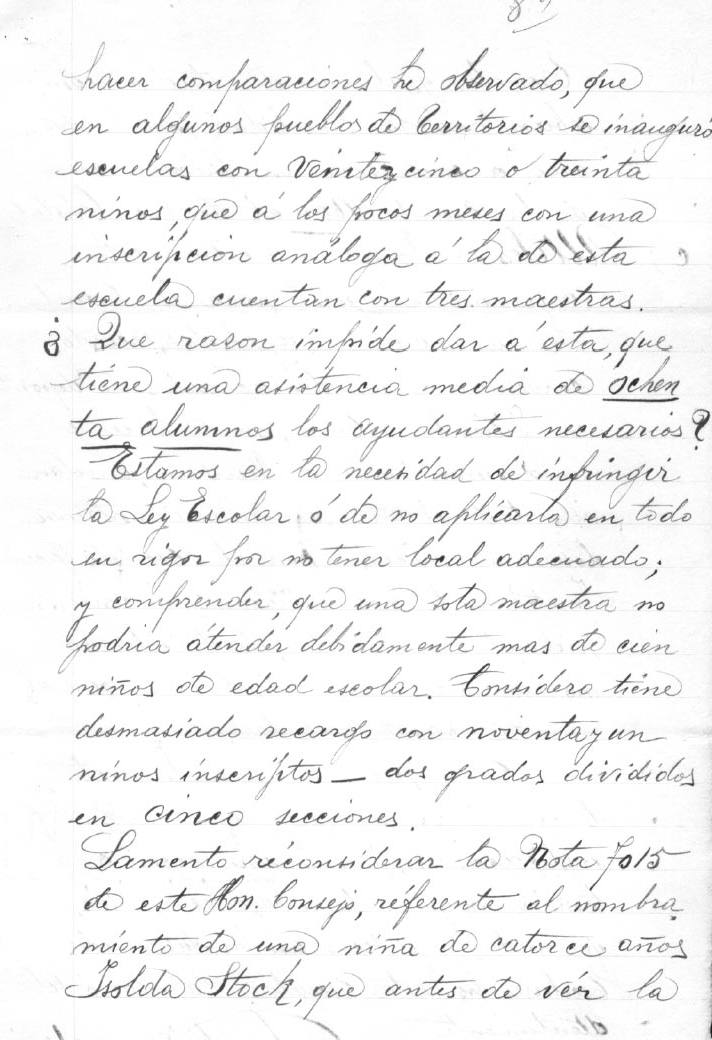 hacer comparaciones he observado, que
en algunos pueblos de Territorios se inauguró
escuelas con Veniteycinco o treinta
ninos, que á los pocos meses con una
inscripcion análoga á la de esta
escuela cuentan con tres maestras.
¿ Que rason impide dar á esta, que
tiene una asistencia media de ochen
ta alumnos los ayudantes necesarios?
Estamos en la necesidad de infringir
la Ley Escolar ó de no aplicarla en todo
su rigor por no tener local adecuado;
y comprender, que una sola maestra no
podria atender debidamente mas de cien
niños de edad escolar. Considero tiene
desmasiado recargo con noventa y un
ninos inscriptos — dos grados divididos
en cinco secciones.
Lamento reconsiderar la Nota 7015
de este Hon. Consejo, referente al nombra
miento de una niña de catorce años
Isolda Stock, que antes de vér la